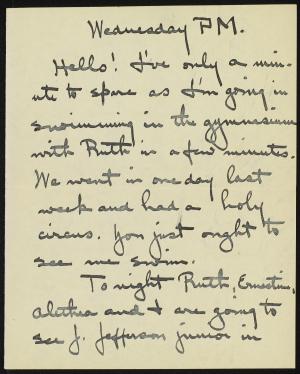 Wednesday P.M.
Hello! I've only a min-
ute to spare as I'm going in
swimming in the gymnasium
with Ruth in a few minutes.
We went in one day last
week and had a holy
circus. You just ought to
see me swim.
To night Ruth, Ernestine,
Alethea and I are going to
see J. Jefferson junior in